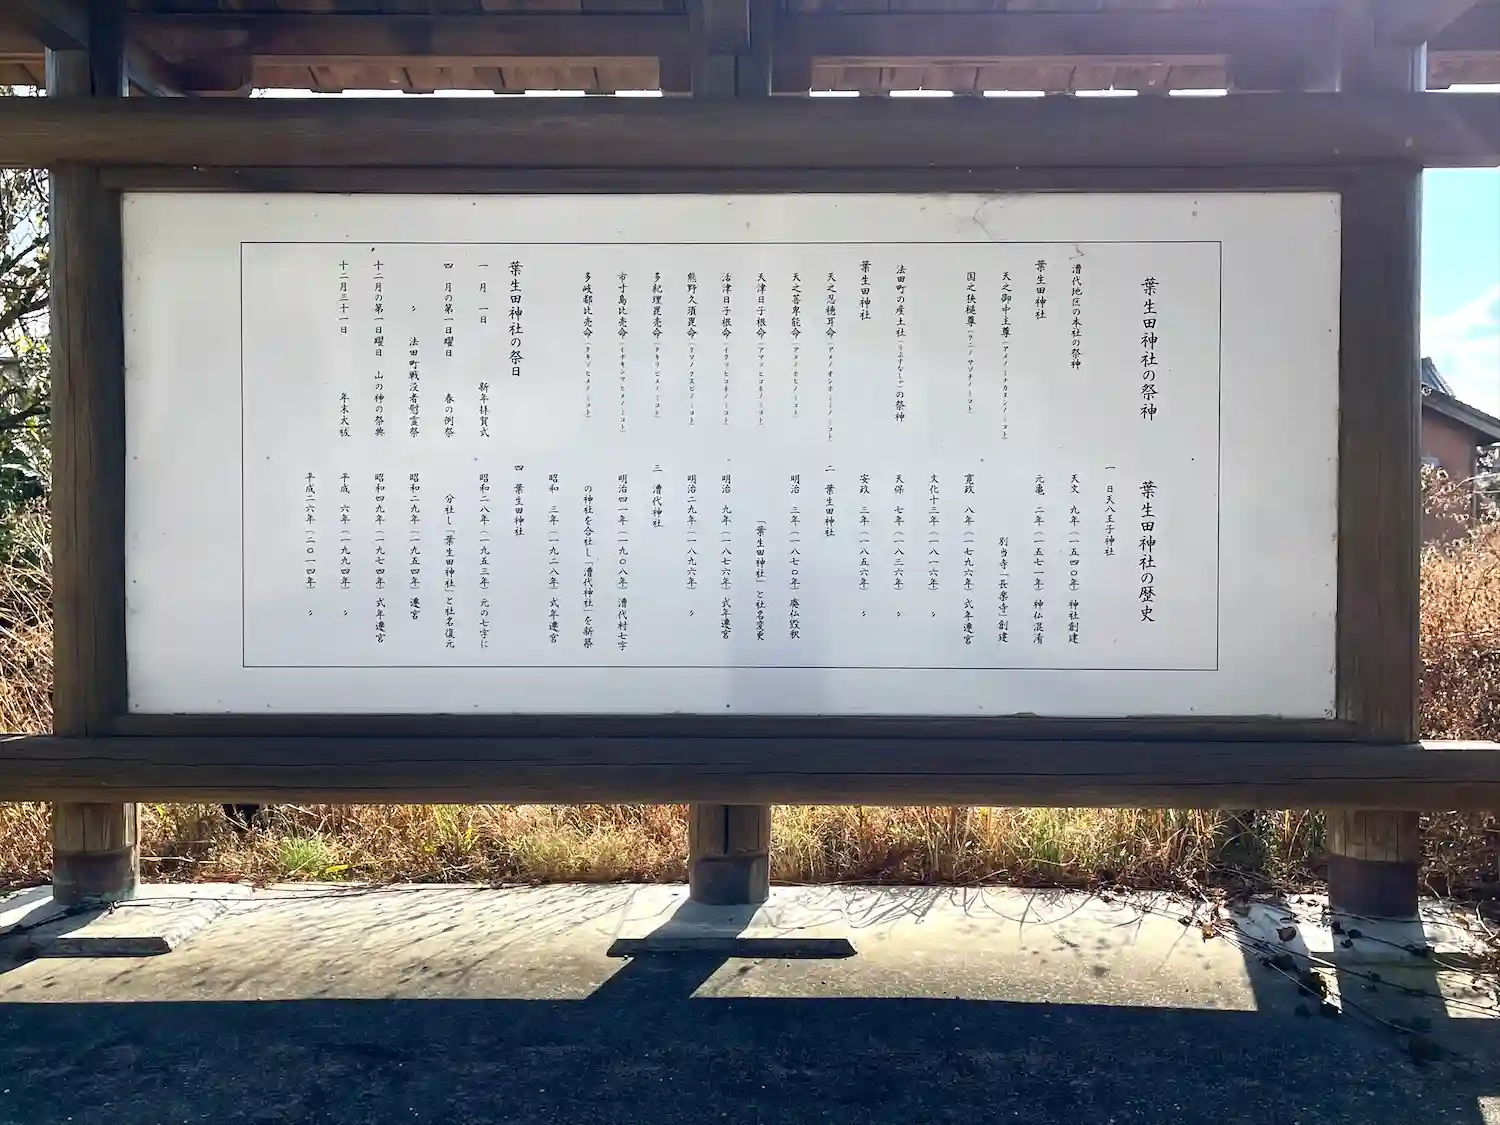 葉生田神社の祭神
漕代地区の本社の祭神
葉生田神社
天之御中主尊（アメノミナカヌシノミコト）
国之狭槌尊（クニノサヅチノミコト）
法田町の産土社（うぶすなしゃ）の祭神
葉生田神社
天之忍穂耳命（アメノオシホミミノミコト）
天之菩卑能命（アメノホヒノミコト）
天津日子根命（アマツヒコネノミコト）
活津日子根命（イクツヒコネノミコト）
熊野久須毘命（クマノクスビノミコト）
多紀理毘売命（タキリビメノミコト）
市寸島比売命（イチキシマヒメノミコト）
多岐都比売命（タキツヒメノミコト）
葉生田神社の祭日
一月　一日　新年拝賀式
四　月の第一日曜日　春の例祭
〃　法田町戦没者慰霊祭
十二月の第一日曜日　山の神の祭典
十二月三十一日　年末大祓
葉生田神社の歴史
一　日天八王子神社
天文　九年（一五四〇年）神社創建
元亀　二年（一五七一年）神仏混淆
別当寺「長楽寺」創建
寛政　八年（一七九六年）式年遷宮
文化十三年（一八一六年）〃
天保　七年（一八三六年）〃
安政　三年（一八五六年）〃
二　葉生田神社
明治　三年（一八七〇年）廃仏毀釈
「葉生田神社」と社名変更
明治　九年（一八七六年）式年遷宮
明治二九年（一八九六年）〃
三　漕代神社
明治四一年（一九〇八年）漕代村七字
の神社を合社し「漕代神社」を新築
昭和　三年（一九二八年）式年遷宮
四　葉生田神社
昭和二八年（一九五三年）元の七字に
分社し「葉生田神社」と社名復元
昭和二九年（一九五四年）遷宮
昭和四九年（一九七四年）式年遷宮
平成　六年（一九九四年）〃
平成二六年（二〇一四年）〃